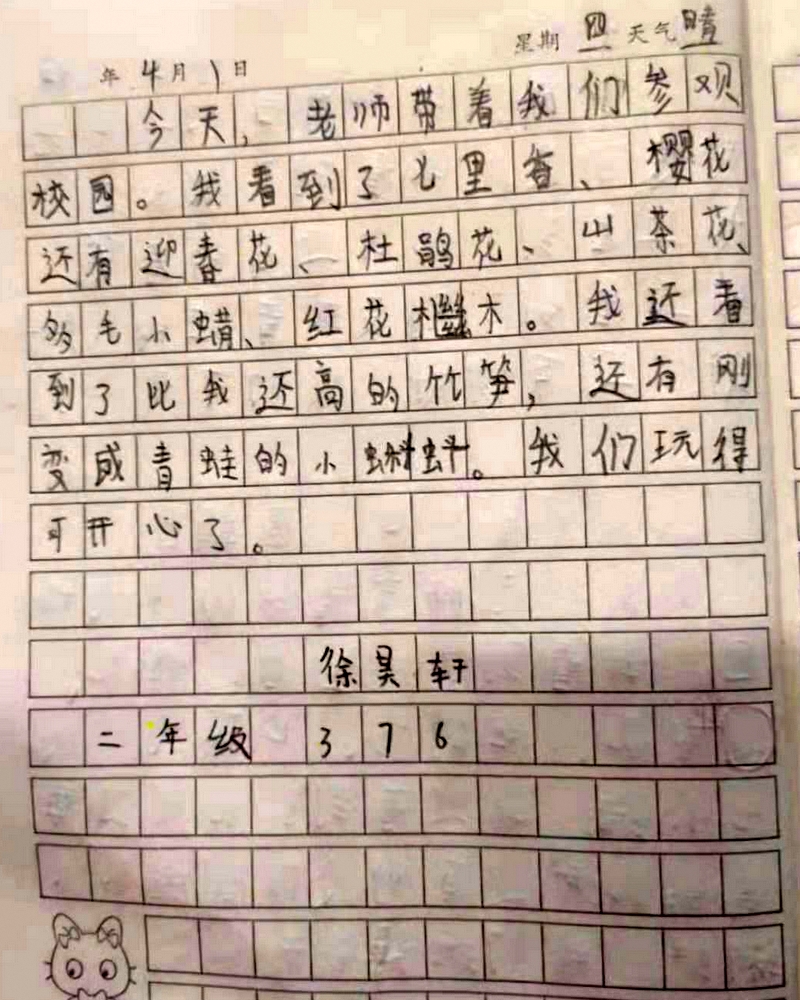 星期 四 天气 晴
年 4月 1日
今天，老师带着我们参观
校园。我看到了七里香、樱花
还有迎春花、杜鹃花、山茶花、
多毛小蜡、红花檵木。我还看
到了比我还高的竹笋，还有刚
变成青蛙的小蝌蚪。我们玩得
可开心了。
徐昊轩
二年级 376